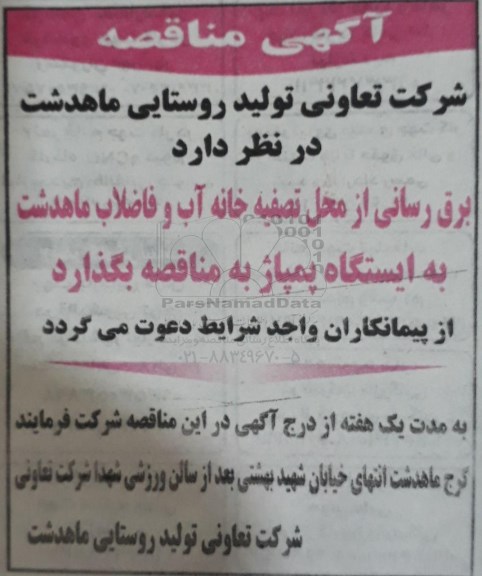 آگهی مناقصه
شرکت تعاونی تولید روستایی ماهدشت
در نظر دارد
برق رسانی از محل تصفیه خانه آب و فاضلاب ماهدشت
به ایستگاه پمپاژ به مناقصه بگذارد
ParsNamadData
از پیمانکاران واحد شرایط دعوت می گردد
۰۲۱-۸۸۳۴۹۶۷۰-۵
به مدت یک هفته از درج آگهی در این مناقصه شرکت فرمایند
کرج ماهدشت انتهای خیابان شهید بهشتی بعد از سالن ورزشی شهدا شرکت تعاونی
شرکت تعاونی تولید روستایی ماهدشت